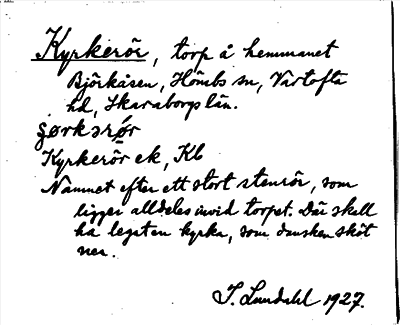 Kyrkerör, torp å hemmanet
Björkåsen, Hömbs sn, Vartofta
hd, Skaraborgs län.
şørkɜrǿr
Kyrkerör ek, Kb
Namnet efter ett stort stenrör, som
ligger alldeles invid torpet. Där skall
ha legat en kyrka, som dansken sköt
ner.
I. Lundahl 1927.